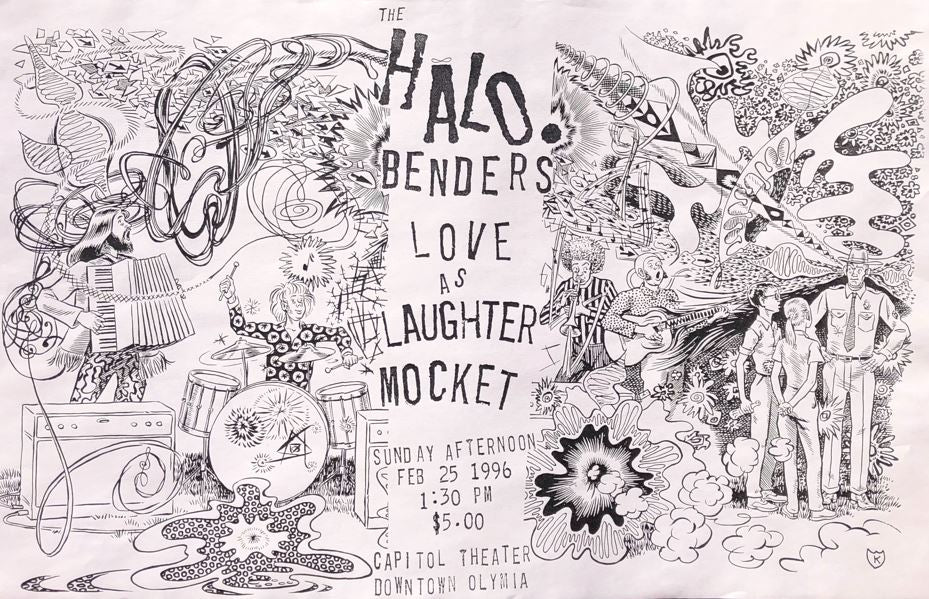 THE
HALO.
BENDERS
LOVE
AS
LAUGHTER
MOCKET
SUNDAY AFTERNOON
FEB 25 1996
1:30 PM
$5.00
CAPITOL THEATER
DOWNTOWN OLYMIA
K